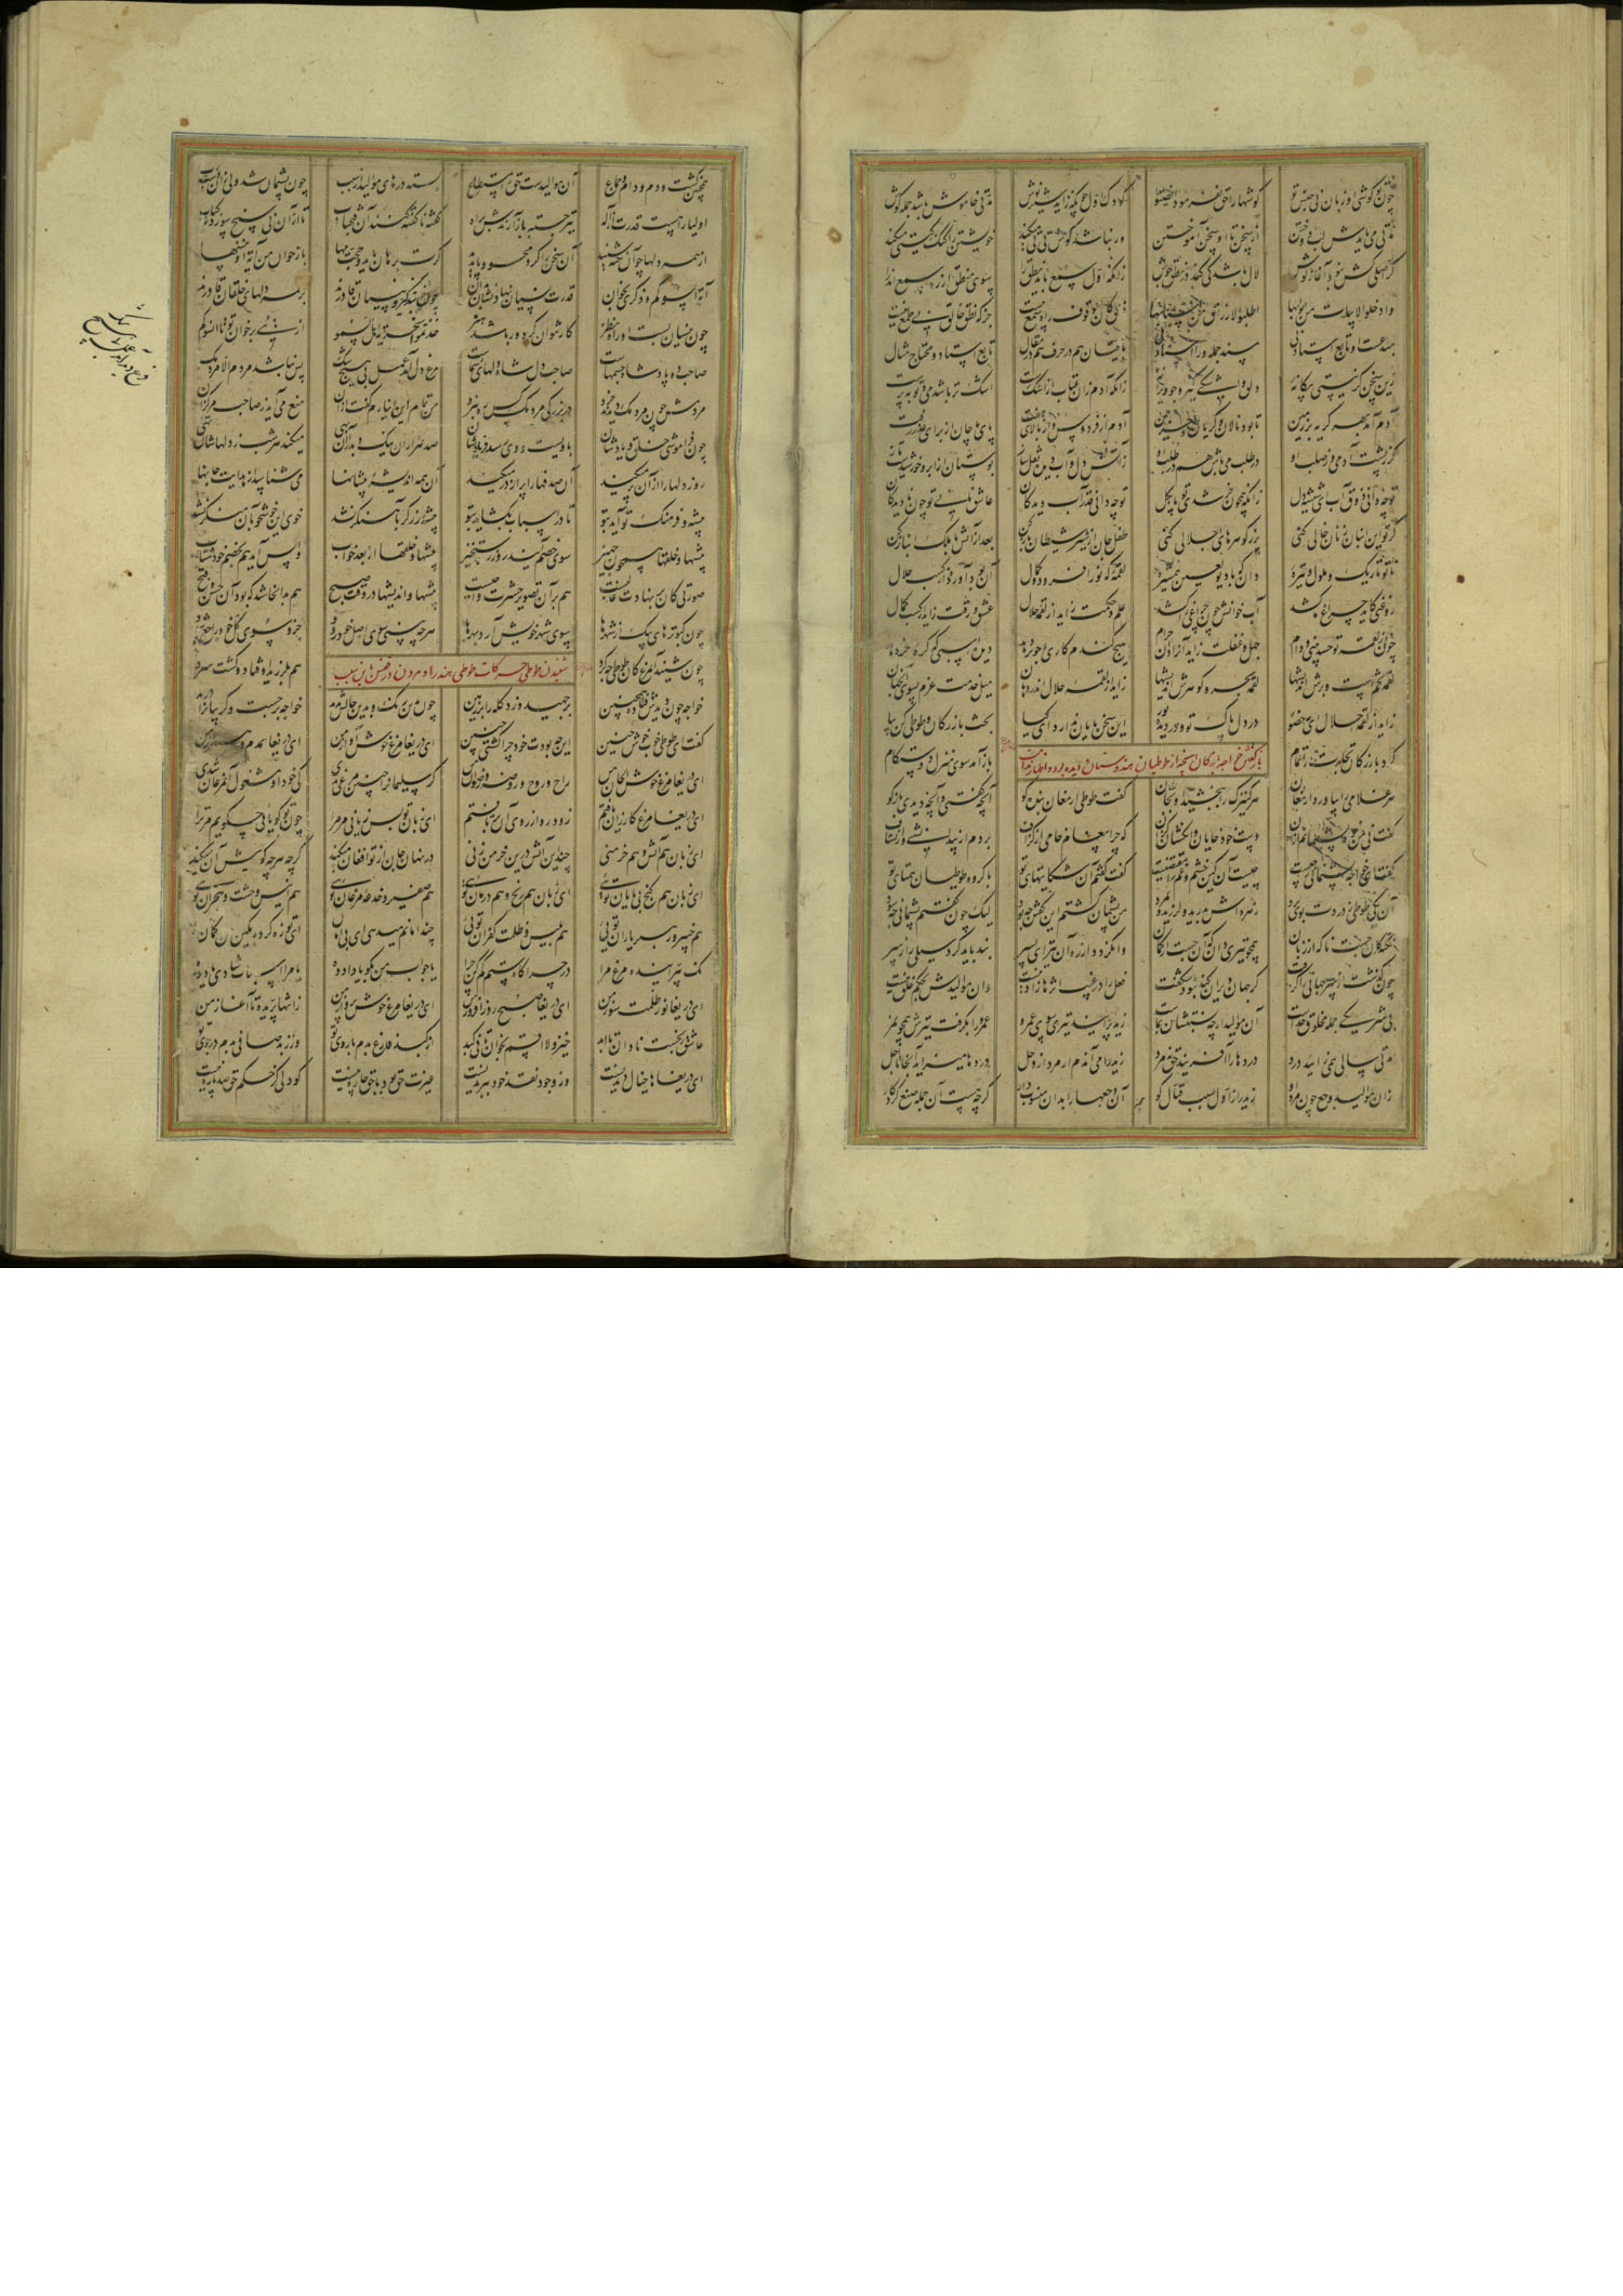 چون تو گوشی او زبان نی جنس تو گوشها را حق بفرمود انصتوا کودک اول چون بزاید شیرنوش مدتی خامش باشد جمله گوش
مدتی می بایدش لب دوختن از سخن تا او سخن آموختن ور نباشد گوش تی تی میکند خویشتن را گنگ گیتی میکند
کر اصلی کش نبود آغاز گوش لال باشد کی کند در نطق جوش زانکه اول سمع باید نطق را سوی منطق از ره سمع اندرآ
وادخلوا الابیات من ابوابها اطلبوا الارزاق من اسبابها نطق کان موقوف راه سمع نیست جز که نطق خالق بی طمع نیست
مبدعست او تابع استاد نی مسند جمله ورا اسناد نی باقیان هم در حرف هم در مقال تابع استاد و محتاج مثال
زین سخن گر نیستی بیگانه دلق و اشکی گیر در ویرانه زانکه آدم زان عتاب از اشک رست اشک تر باشد دم توبه پرست
بهر گریه آدم آمد بر زمین تا بود نالان و گریان و حزین آدم از فردوس و از بالای هفت پای ماچان از برای عذر رفت
گر ز پشت آدمی وز صلب او در طلب می باش هم در طلب او ز آتش دل و آب دیده نقل ساز بوستان از ابر و خورشیدست تاز
تو چه دانی ذوق آب ای شیشه دل زانکه همچون خر شدی تو پا بگل تو چه دانی قدر آب دیدگان عاشق نانی تو چون نادیدگان
گر تو این انبان ز نان خالی کنی پر ز گوهرهای اجلالی کنی طفل جان از شیر شیطان باز کن بعد از آنش با ملک انباز کن
تا تو تاریک و ملول و تیره دان که با دیو لعین همشیره لقمه کو نور افزود و کمال آن بود آورده از کسب حلال
روغنی کاید چراغ ما کشد آب خوانش چون چراغی را کشد علم و حکمت زاید از لقمه حلال عشق و رقت زاید از کسب حلال
چون ز لقمه تو حسد بینی و دام جهل و غفلت زاید آنرا دان حرام هیچ گندم کاری و جو بر دهد دیده اسپی که کره خر دهد
لقمه تخمست و برش اندیشها لقمه بحر و گوهرش اندیشها زاید از لقمه حلال اندر دهان میل خدمت عزم سوی آنجهان
زاید از لقمه حلال ای مه حضور در دل پاک تو و در دیده نور این سخن پایان ندارد ای کیا بحث بازرگان و طوطی کن بیا
باز گفتن خواجه بازرگان آنچه از طوطیان هندوستان دیده بود با طوطی
کرد بازرگان تجارت را تمام باز آمد سوی منزل دوستکام
هر غلامی را بیاورد ارمغان هر کنیزک را ببخشید او نشان گفت طوطی ارمغان بنده کو آنچه گفتی و آنچه دیدی بازگو
گفت نی من خود پشیمانم از آن دست خود خایان و انگشتان گزان که چرا پیغام خامی از گزاف بردم از بیدانشی و از نشاف
گفت ای خواجه پشیمانی ز چیست چیست آن کین خشم و غم را مقتضیست گفت گفتم آن شکایتهای تو با گروه طوطیان همتای تو
آن یکی طوطی ز دردت بوی برد زهره اش بدرید و لرزید و بمرد من پشیمان گشتم این گفتن چه بود لیک چون گفتم پشیمانی چه سود
نکته کان جست ناگه از زبان همچو تیری دان که آن جست از کمان وا نگردد از ره آن تیر ای پسر بند باید کرد سیلی را ز سر
چون گذشت از سر جهانی را گرفت گر جهان ویران کند نبود شگفت فعل را در غیب اثرها زادنیست و آن موالیدش بحکم خلق نیست
بی شریکی جمله مخلوق خداست آن موالید ار چه نسبتشان بماست زید پرانید تیری سوی عمرو عمرو را بگرفت تیرش همچو نمر
مدت سالی همی زایید درد دردها را آفریند حق نه مرد زید رامی آندم ار مرد از وجل دردها می زاید آنجا تا اجل
زان موالید وجع چون مرد او زید را ز اول سبب قتال گو آن وجعها را بدان منسوب دار گرچه هست آن جمله صنع کردگار
همچنین کشت و دم و دام و جماع آن موالیدست حق را مستطاع بسته درهای موالید از سبب چون پشیمان شد ولی ز آن دست رب
اولیا را هست قدرت از اله تیر جسته باز آرندش ز راه گفته ناگفته کند از فتح باب تا از آن نی سیخ سوزد نی کباب
از همه دلها که آن نکته شنید آن سخن را کرد محو و ناپدید گرت برهان باید و حجت مها باز خوان من آیة او ننسها
آیت انسوکم ذکری بخوان قدرت نسیان نهادنشان بدان چون بتذکیر و بنسیان قادرند بر همه دلهای خلقان قاهرند
چون بنسیان بست او راه نظر کار نتوان کرد ور باشد هنر خذتموا سخریة اهل السمو از نبی برخوان تو تا انسوکم
صاحب ده پادشاه جسمهاست صاحب دل شاه دلهای شماست فرع دید آمد عمل بی هیچ شک پس نباشد مردم الا مردمک
مردمش چون مردمک دیدند خرد در بزرگی مردمک کس ره نبرد من تمام این نیارم گفت از آن منع می آید ز صاحب مرکزان
چون فراموشی خلق و یادشان با ویست و او رسد فریادشان صد هزاران نیک و بد را آن بهی میکند هر شب ز دلهاشان تهی
روز دلها را از آن پر میکند آن صدفها را پر از در میکند آن همه اندیشه پیشانها می شناسند از هدایت جانها
پیشه و فرهنگ تو آید بتو تا در اسباب بگشاید بتو پیشه زرگر بآهنگر نشد خوی این خوشخو بآن منکر نشد
پیشها و خلقها همچون جهیز سوی خصم آیند روز رستخیز پیشها و خلقها از بعد خواب واپس آید هم بخصم خود شتاب
صورتی کان بر نهادت غالبست هم بر آن تصویر حشرت واجبست پیشها و اندیشها در وقت صبح هم بدانجا شد که بود آن حسن و قبح
چون کبوترهای پیک از شهرها سوی شهر خویش آرد بهرها هر چه بینی سوی اصل خود رود جزو سوی کل خود راجع شود
شنیدن طوطی حرکات طوطی هند را و مردن در قفس باین سبب
چون شنید آن مرغ کان طوطی چه کرد هم بلرزید و فتاد و گشت سرد
خواجه چون دیدش فتاده همچنین برجهید و زد کله را بر زمین چون بدین رنگ و بدین حالش بدید خواجه بر جست و گریبان را درید
گفت ای طوطی خوب خوش حنین این چه بودت خود چرا گشتی چنین ای دریغا مرغ خوش آواز من ای دریغا همدم و همراز من
ای دریغا مرغ خوش الحان من راح روح و روضه و رضوان من گر سلیمان را چنین مرغی بدی کی خود او مشغول آن مرغان شدی
ای دریغا مرغ کارزان یافتم زود رو از روی آن برتافتم ای زبان تو بس زیانی مر مرا چون تو گویایی چه گویم مر ترا
ای زبان هم آتش و هم خرمنی چند این آتش درین خرمن زنی در نهان جان از تو افغان میکند گرچه هر چه گویش آن میکند
ای زبان هم گنج بی پایان تویی ای زبان هم رنج و هم درمان تویی هم صفیر و خدعه مرغان تویی هم انیس وحشت و هجران تویی
هم خفیر و رهبر یاران تویی هم بلیس و ظلمت کفران تویی چند امانم میدهی ای بی امان ای تو زه کرده بکین من کمان
نک بپرانیده مرغ مرا در چراگاه ستم کم کن چرا یا جواب من بگو یا داد ده یا مرا اسباب شادی یاد ده
ای دریغا نور ظلمت سوز من ای دریغا صبح روز افروز من ای دریغا مرغ خوش پرواز من ز انتها پریده تا آغاز من
عاشق رنجست نادان تا ابد خیز و لا اقسم بخوان تا فی کبد از کبد فارغ بدم با روی تو وز زبد صافی بدم در جوی تو
ای دریغا ها خیال دیدنست وز وجود نقد خود ببریدنست غیرت حق بود و با حق چاره نیست کو دلی کز حکم حق صد پاره نیست